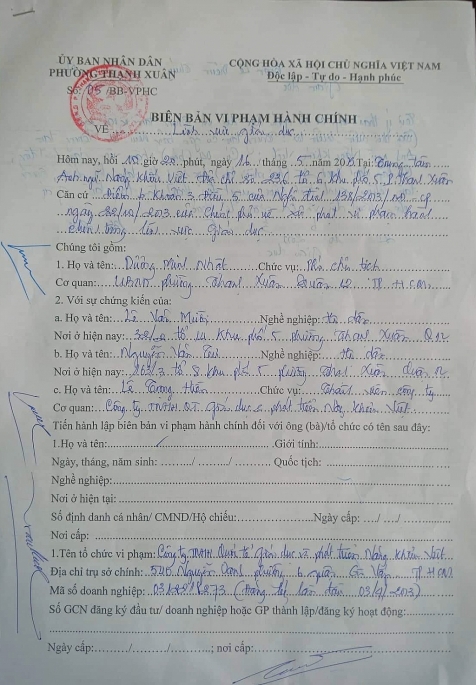 ỦY BAN NHÂN DÂN
PHƯỜNG THẠNH XUÂN
Số: 05 /BB-VPHC
CỘNG HÒA XÃ HỘI CHỦ NGHĨA VIỆT NAM
Độc lập - Tự do - Hạnh phúc
BIÊN BẢN VI PHẠM HÀNH CHÍNH
VỀ Lĩnh vực giáo dục
Hôm nay, hồi giờ 20 phút, ngày 16 tháng 5 năm Tại: Trung tâm
Anh ngữ Năng khiếu Việt địa chỉ số 236 tổ 6, khu phố 5, P Thạnh Xuân
Căn cứ điểm b khoản 3 điều 5 của Nghị định 138/2013/NĐ-CP
ngày 22/10/2013 của Chính phủ về xử phạt vi phạm hành
chính trong lĩnh vực Giáo dục
Chúng tôi gồm:
1. Họ và tên: Dương Minh Nhất Chức vụ: Phó chủ tịch
Cơ quan: UBND phường Thạnh Xuân Quận 12 TP HCM
2. Với sự chứng kiến của:
a. Họ và tên: Lê Văn Mười Nghề nghiệp: tổ dân
Nơi ở hiện nay: tổ khu phố 5 phường Thạnh Xuân Q12
b. Họ và tên: Nguyễn Văn Nghề nghiệp: tổ dân
Nơi ở hiện nay: tổ 8 khu phố 5 phường Thạnh Xuân Quận 12
c. Họ và tên: Lê Chức vụ: Thành viên công ty
Cơ quan: Công ty TNHH QT giáo dục & phát triển Năng khiếu Việt
Tiến hành lập biên bản vi phạm hành chính đối với ông (bà)/tổ chức có tên sau đây:
1.Họ và tên: Giới tính:
Ngày, tháng, năm sinh: ....../....../...... Quốc tịch:
Nghề nghiệp:
Nơi ở hiện tại:
Số định danh cá nhân/ CMND/Hộ chiếu: Ngày cấp: .../.../...
Nơi cấp:
1.Tên tổ chức vi phạm: Công ty TNHH Quốc tế giáo dục và phát triển Năng khiếu Việt
Địa chỉ trụ sở chính: 540 Nguyễn phường 6 quận Gò Vấp TP HCM
Mã số doanh nghiệp: (Đăng ký lần đầu 03/4/2013)
Số GCN đăng ký đầu tư/ doanh nghiệp hoặc GP thành lập/đăng ký hoạt động:
Ngày cấp:....../....../......; nơi cấp: